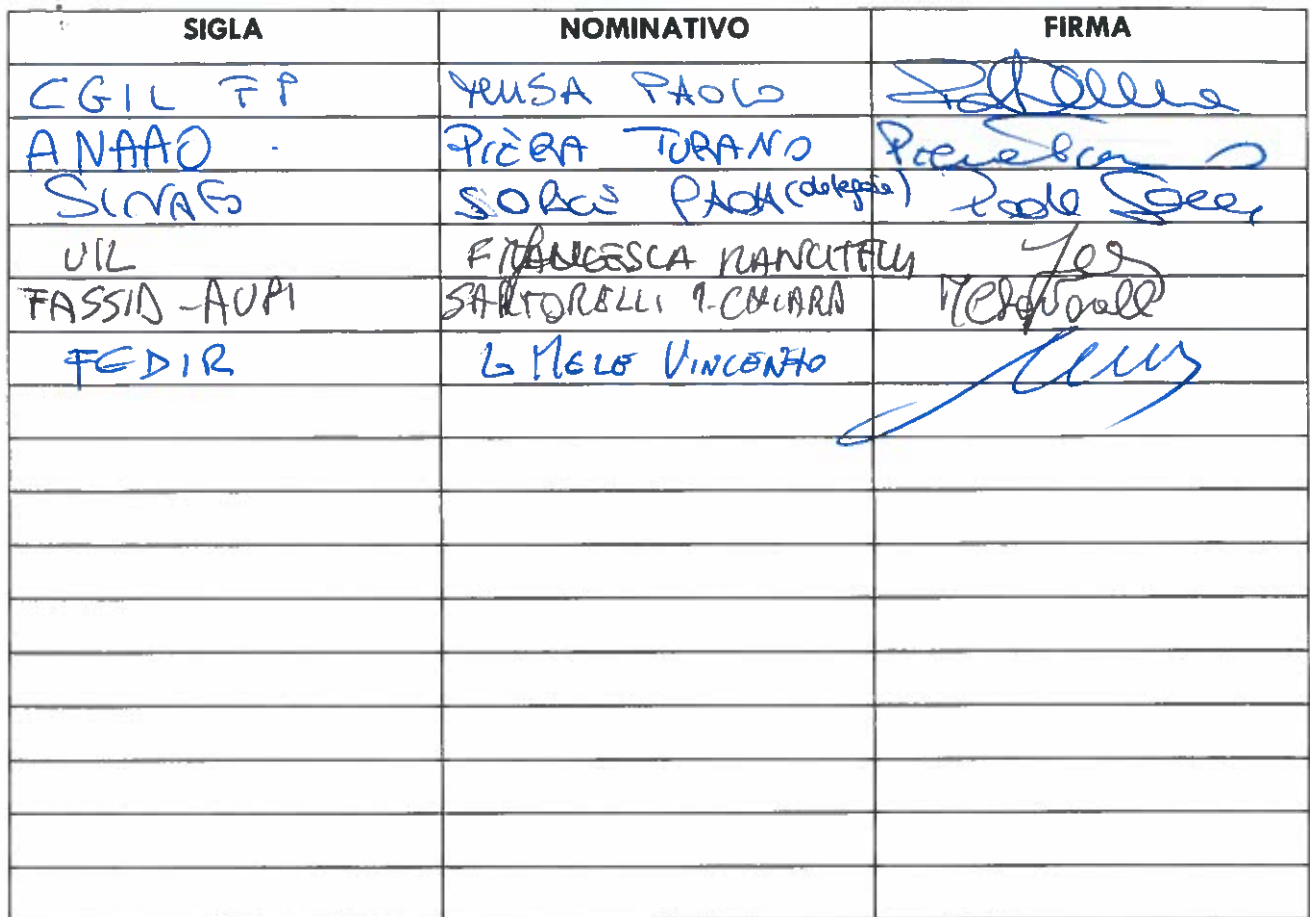 SIGLA NOMINATIVO FIRMA
CGIL FP PAOLO
ANAAO PIERA TURANO
SINAFO SORCE PAOLA (delegata) Paola Sorce
UIL FRANCESCA
FASSID-AUPI SARTORELLI M.CHIARA
FEDIR LO MELE VINCENZO